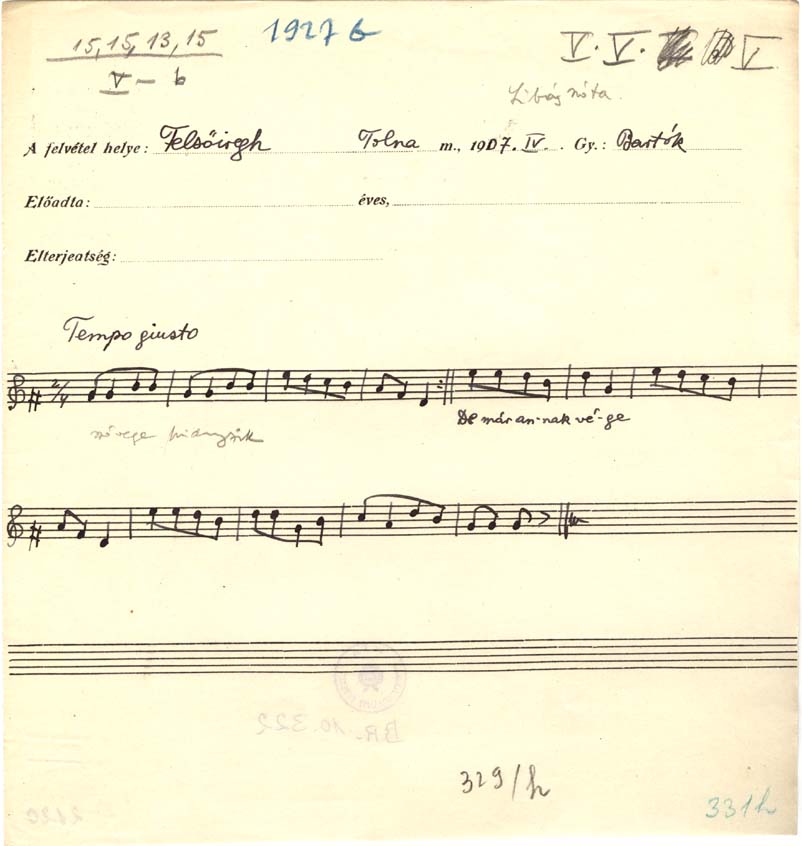 15, 15, 13, 15
1927 b
V. V. V
V — b
Libás nóta.
A felvétel helye: Felsőiregh Tolna m., 1907. IV. . Gy.: Bartók
Előadta: éves,
Elterjeatség:
Tempo giusto
2/4
szövege hiányzik
De már an-nak vé-ge
BR. 10.322
329/h
331h